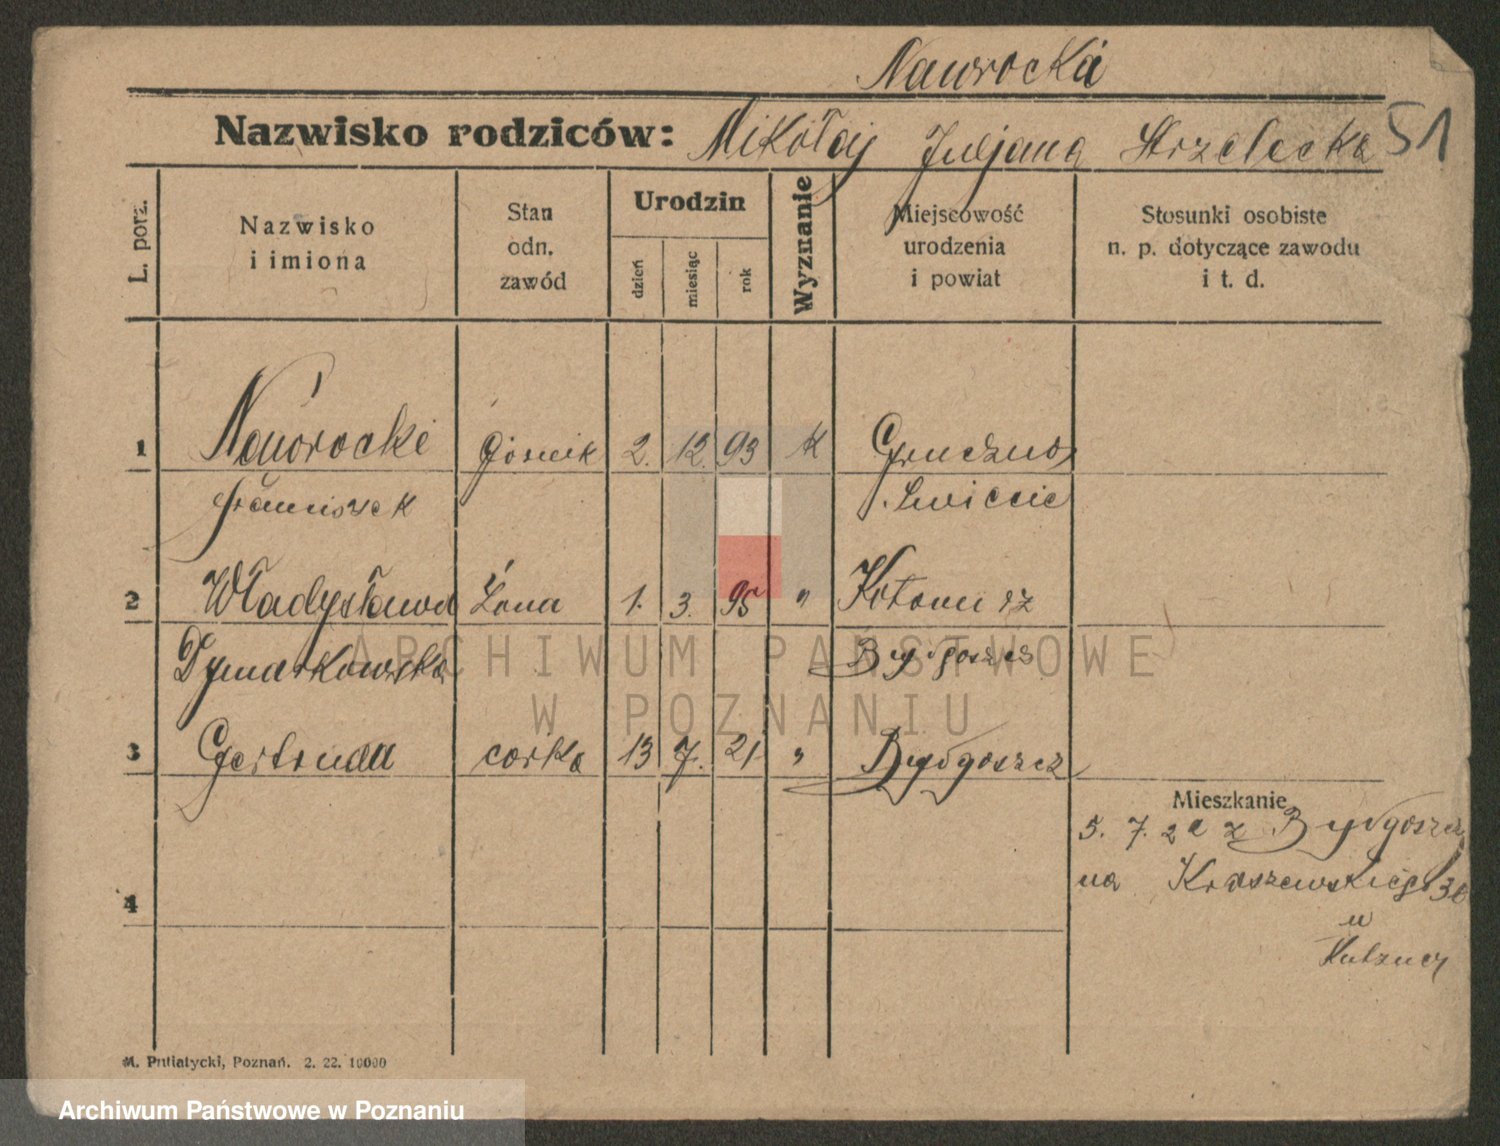 Nawrocka
Nazwisko rodziców: Mikołaj Juljanna Strzelecka 51
L. porz.
Nazwisko
i imiona
Stan
odn.
zawód
Urodzin
dzień
miesiąc
rok
Wyznanie
Miejscowość
urodzenia
i powiat
Stosunki osobiste
n. p. dotyczące zawodu
i t. d.
1 Nawrocki Górnik 2. 12. 93 K Gruczno
Franciszek Swiecie
2 Władysława Żona 1. 3. 95 "
Dymarkowska Bydgoszcz
3 Gertruda corka 13 7. 21 " Bydgoszcz
Mieszkanie
5. 7. z Bydgoszcz
na Kraszewskiego
w
4
M. Putiatycki, Poznań. 2. 22. 10000
ARCHIWUM PAŃSTWOWE
W POZNANIU
Archiwum Państwowe w Poznaniu